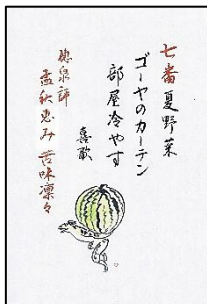 七番 夏野菜
ゴーヤのカーテン
部屋冷やす
喜歌
聴泉評
孟秋恵み 苦味凛々